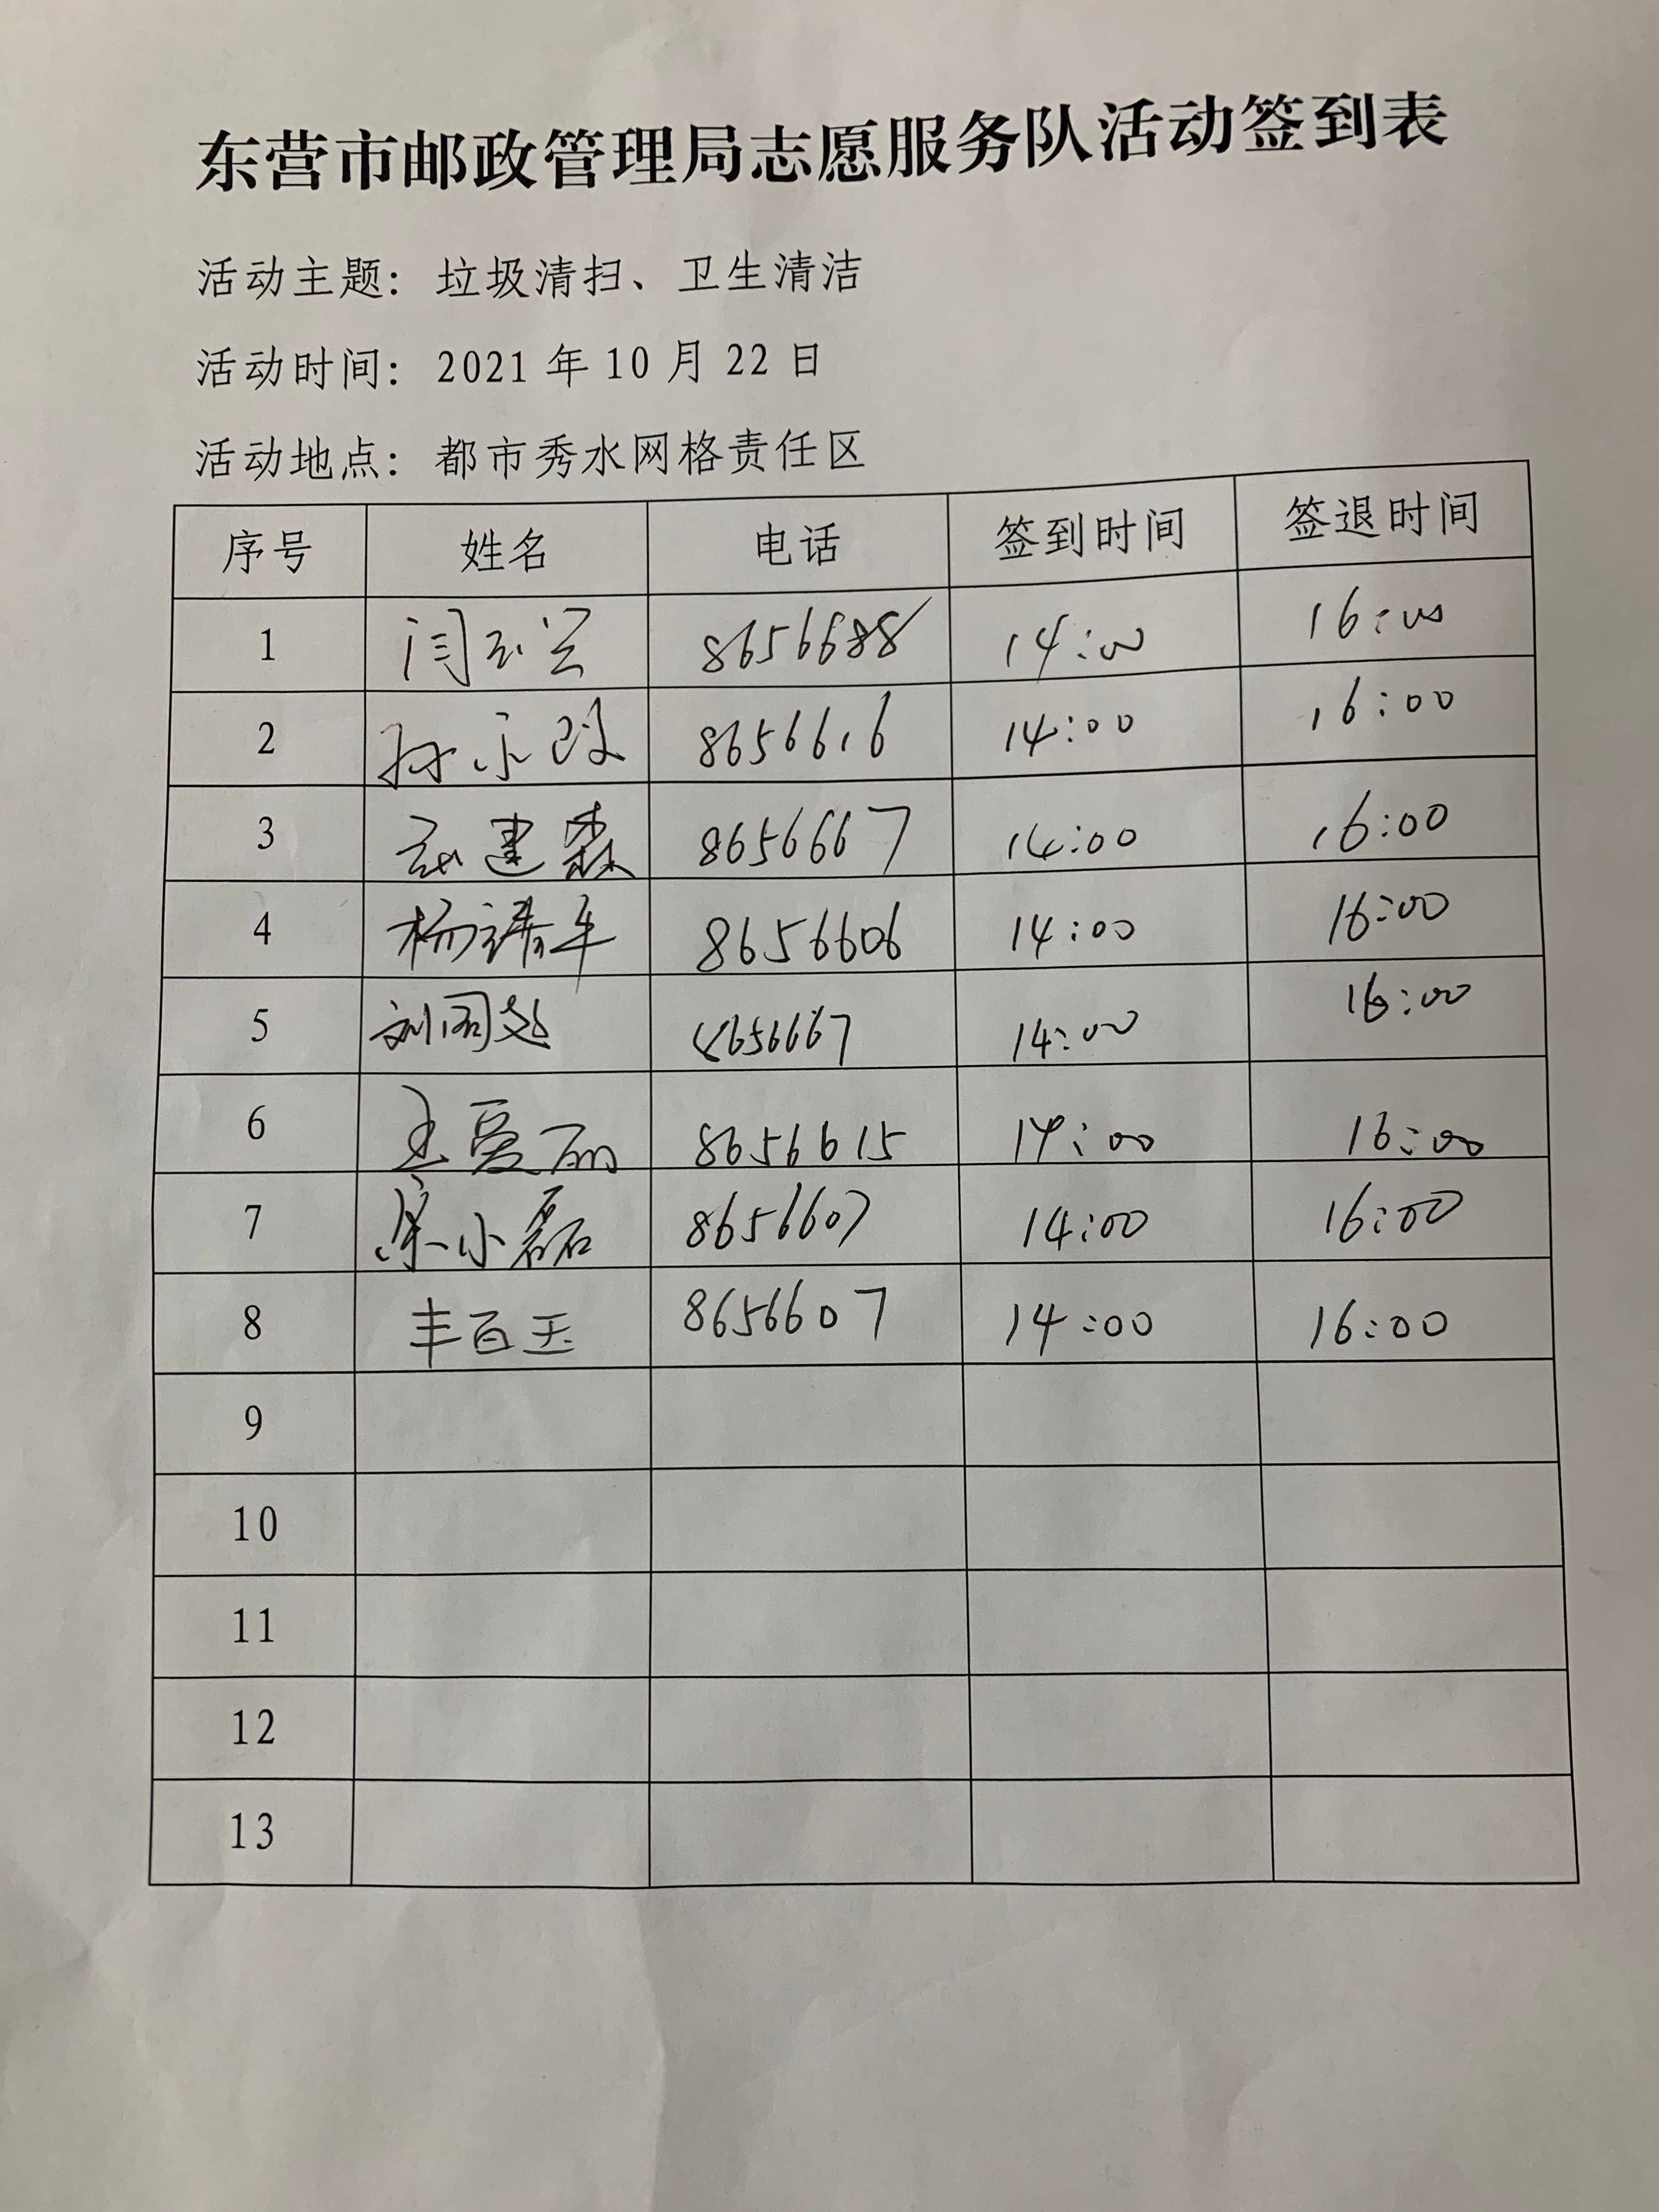 东营市邮政管理局志愿服务队活动签到表
活动主题：垃圾清扫、卫生清洁
活动时间：2021年10月22日
活动地点：都市秀水网格责任区
序号 姓名 电话 签到时间 签退时间
1 8656688 14:00 16:00
2 8656616 14:00 16:00
3 建森 8656667 14:00 16:00
4 杨靖年 8656606 14:00 16:00
5 刘 8656667 14:00 16:00
6 王爱丽 8656615 14:00 16:00
7 宋小磊 8656607 14:00 16:00
8 丰百玉 8656607 14:00 16:00
9
10
11
12
13